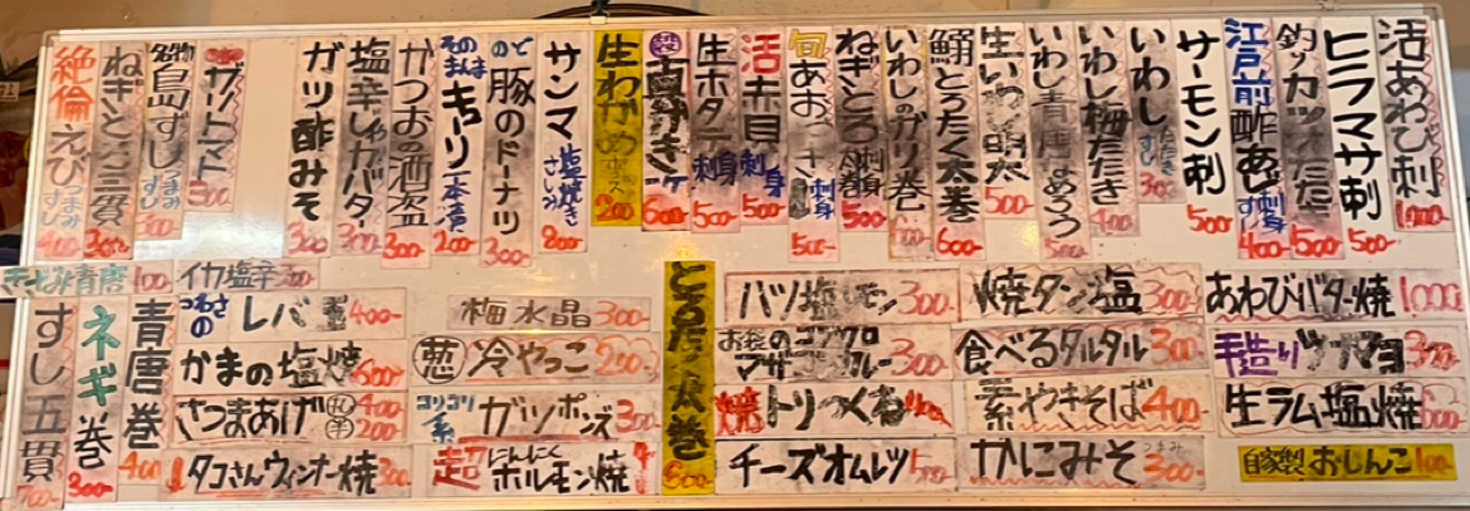 活あわび刺 1,000
ヒラマサ刺 500-
釣りカツオたたき 500-
江戸前酢あじ刺身すし 400-
サーモン刺 500
いわしたたきすし 300
いわし梅たたき 400
いわし青唐なめろう 500
生いわし明太 500-
鰯とろたく太巻 600
いわしのガリ巻 600
ねぎとろ刺身 500
旬あお 刺身 500-
活赤貝刺身 500
生ホタテ刺身 500-
真がき一ケ 600-
生わかめポンズ 200
サンマ塩焼きさしみ 800
のど豚のドーナツ 300
そのまんまキューリ一本漬 200
かつおの酒盗 300
塩辛しイカバター 300
ガツ酢みそ 300
ガリトマト 300
名物島ずしつまみすし
ねぎとろ三貫 300
絶倫えびつまみすし 400
きざみ青唐 100
イカ塩辛 300
あわびバター焼 1,000
焼タン塩 300-
バツ塩レモン 300-
とろたく太巻 600
梅水晶 300-
つわさの レバ 400-
青唐巻 400
ネギ巻 300
すし五貫 700
手造りツナマヨ 350
食べるタルタル 300
お袋のコブクロマザーカレー 300
葱冷やっこ 200
かまの塩焼 600-
生ラム塩焼 600
素やきそば 400-
焼トリつくね
コリコリ系ガツポンズ 300
さつまあげ 丸 400 半 200
自家製おしんこ 100
かにみそつまみ 300-
チーズオムレツ 500
超にんにくホルモン焼
タコさんウィンナー焼 300